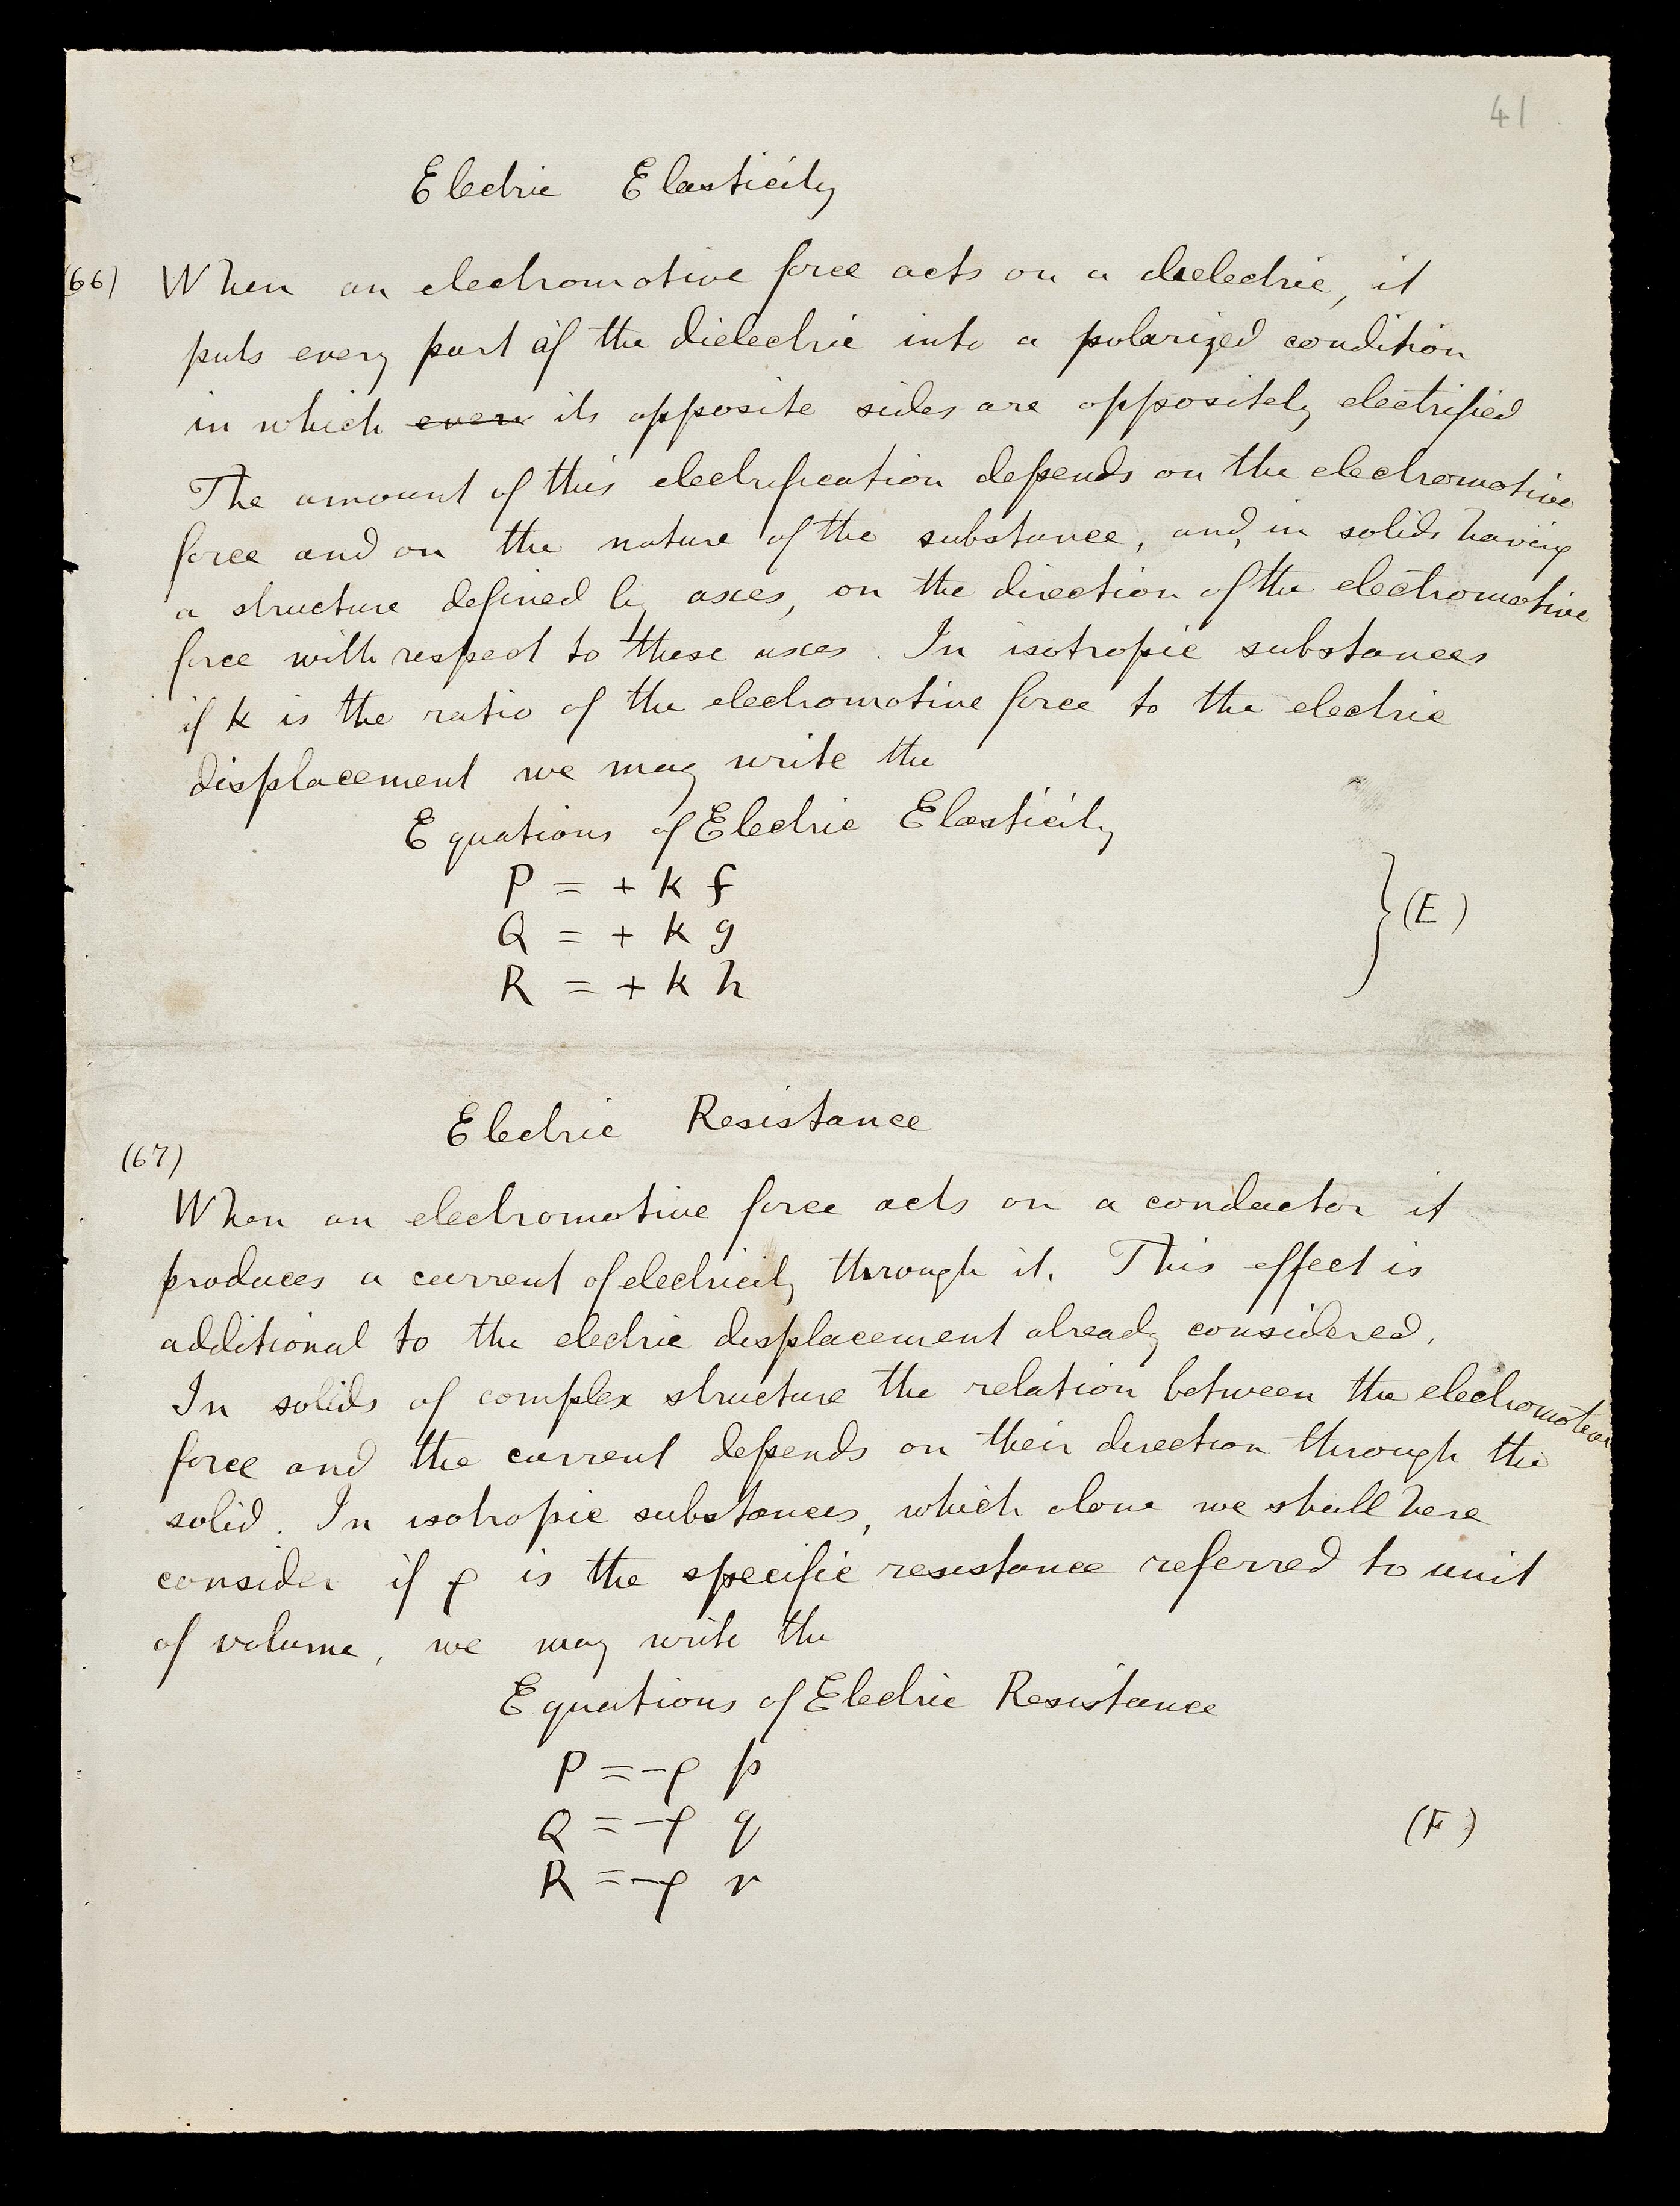 41
Electric Elasticity
(66) When an electromotive force acts on a dielectric, it
puts every part of the dielectric into a polarized condition
in which even its opposite sides are oppositely electrified
The amount of this electrification depends on the electromotive
force and on the nature of the substance, and, in solids having
a structure defined by axes, on the direction of the electromotive
force with respect to these axes. In isotropic substances
if k is the ratio of the electromotive force to the electric
displacement we may write the
Equations of Electric Elasticity
P = + k f
Q = + k g } (E)
R = + k h
Electric Resistance
(67)
When an electromotive force acts on a conductor it
produces a current of electricity through it. This effect is
additional to the electric displacement already considered.
In solids of complex structure the relation between the electromotive
force and the current depends on their direction through the
solid. In isotropic substances, which alone we shall here
consider if ρ is the specific resistance referred to unit
of volume, we may write the
Equations of Electric Resistance
P = -ρ p
Q = -ρ q (F)
R = -ρ r